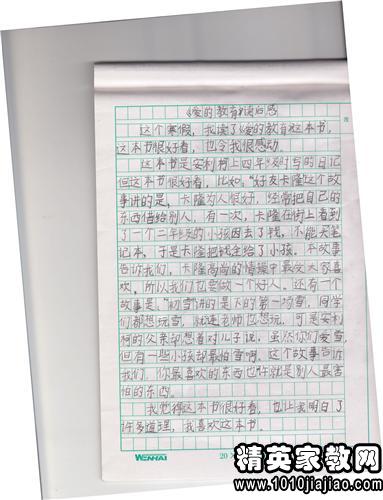 《爱的教育》读后感
这个寒假，我读了《爱的教育》这本书，
这本书很好看，也令我很感动。
这本书是安利柯上四年级时写的日记
但这本书很好看，比如。“好友卡隆这个故
事讲的是，卡隆为人很好，经常把自己的
东西借给别人。有一次，卡隆在街上看到
了一个二年级的小孩因丢了钱，不能买笔
记本，于是卡隆把钱全给了小孩。本故事
告诉我们，卡隆高尚的情操中最受大家喜
欢。所以我们也要做一个好人。还有一个
故事是，“初雪”讲的是下的第一场雪，同学
们都想玩雪，就连老师也想玩，可是安利
柯的父亲却想着对儿子说，虽然你们爱雪，
但有一些小孩却最怕雪啊。这个故事告诉
我们，你最喜欢的东西也许就是别人最害
怕的东西。
我觉得这本书很好看，也让我明白了
许多道理，我喜欢这本书。
WENHAI
20×
精英家教网
www.1010jiajiao.com